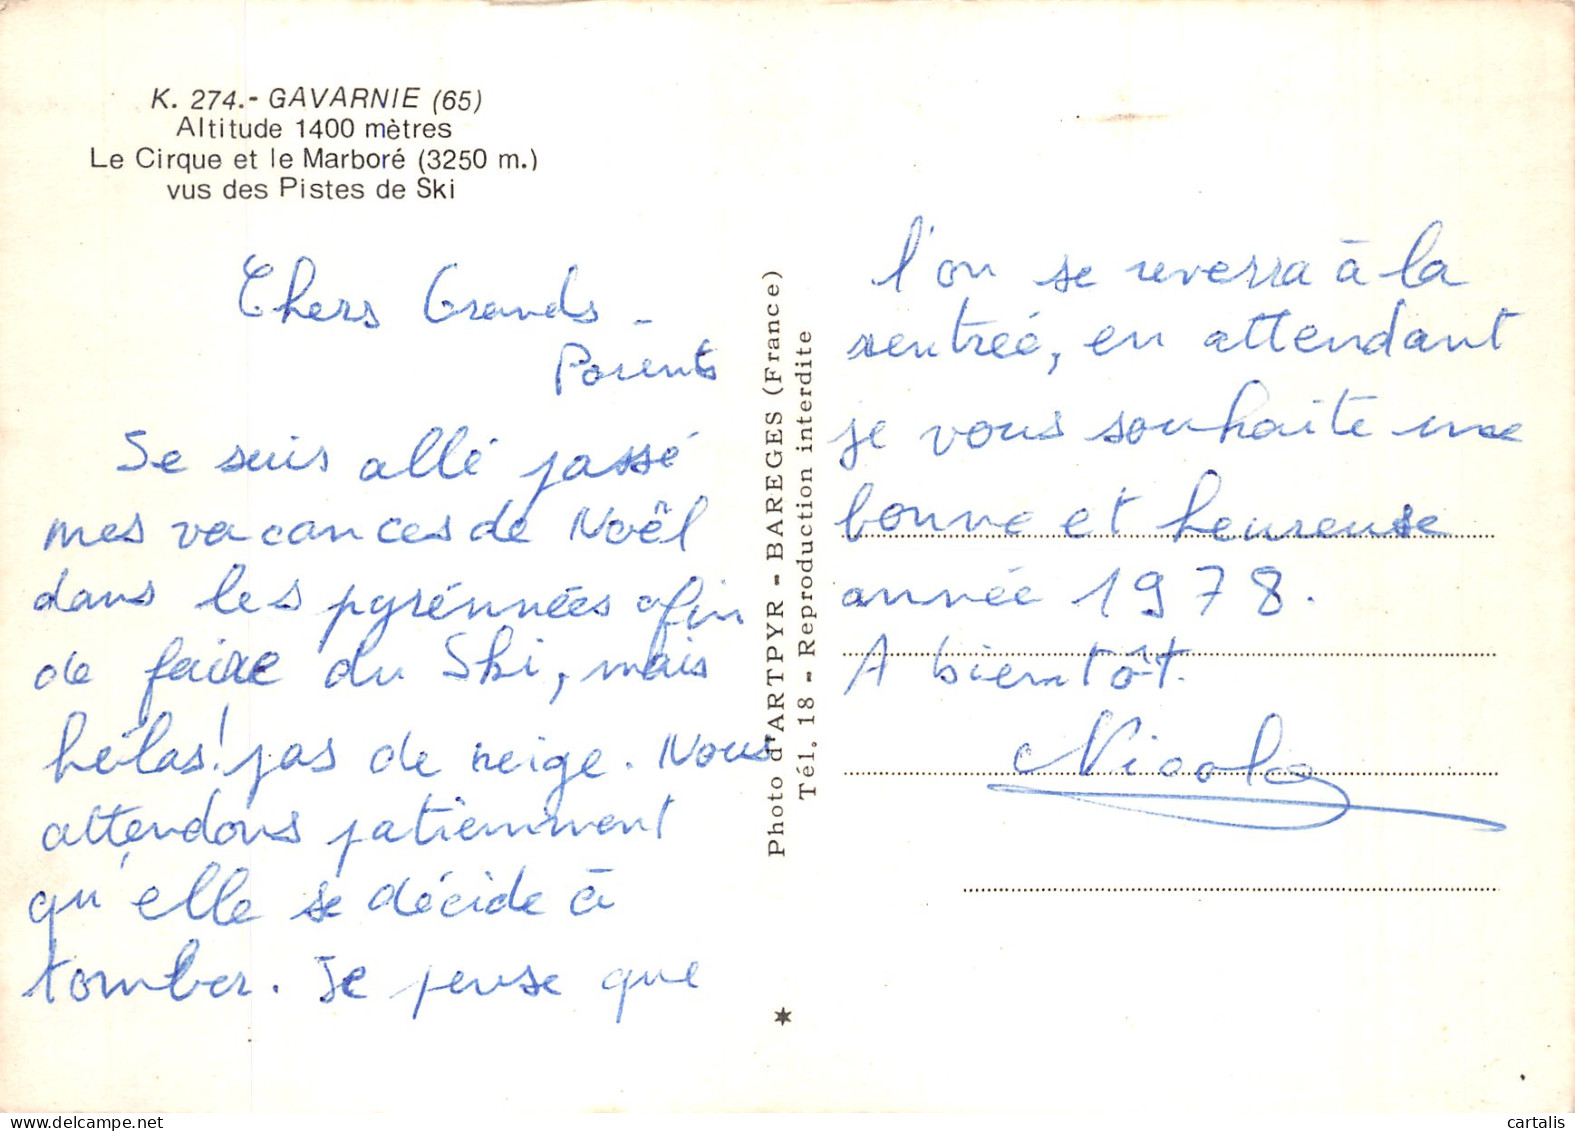 K. 274.- GAVARNIE (65)
Altitude 1400 mètres
Le Cirque et le Marboré (3250 m.)
vus des Pistes de Ski
Chers Grands-
Parents
Je suis allé passé
mes vacances de Noël
dans les pyrénnées afin
de faire du Ski, mais
hélas! pas de neige. Nous
attendons patiemment
qu'elle se décide à
tomber. Je pense que
Photo d'ARTPYR - BAREGES (France)
Tél. 18 - Reproduction interdite
l'on se reverra à la
rentrée, en attendant
je vous souhaite une
bonne et heureuse
année 1978.
A bientôt.
Nicolas
cartalis
delcampe.net